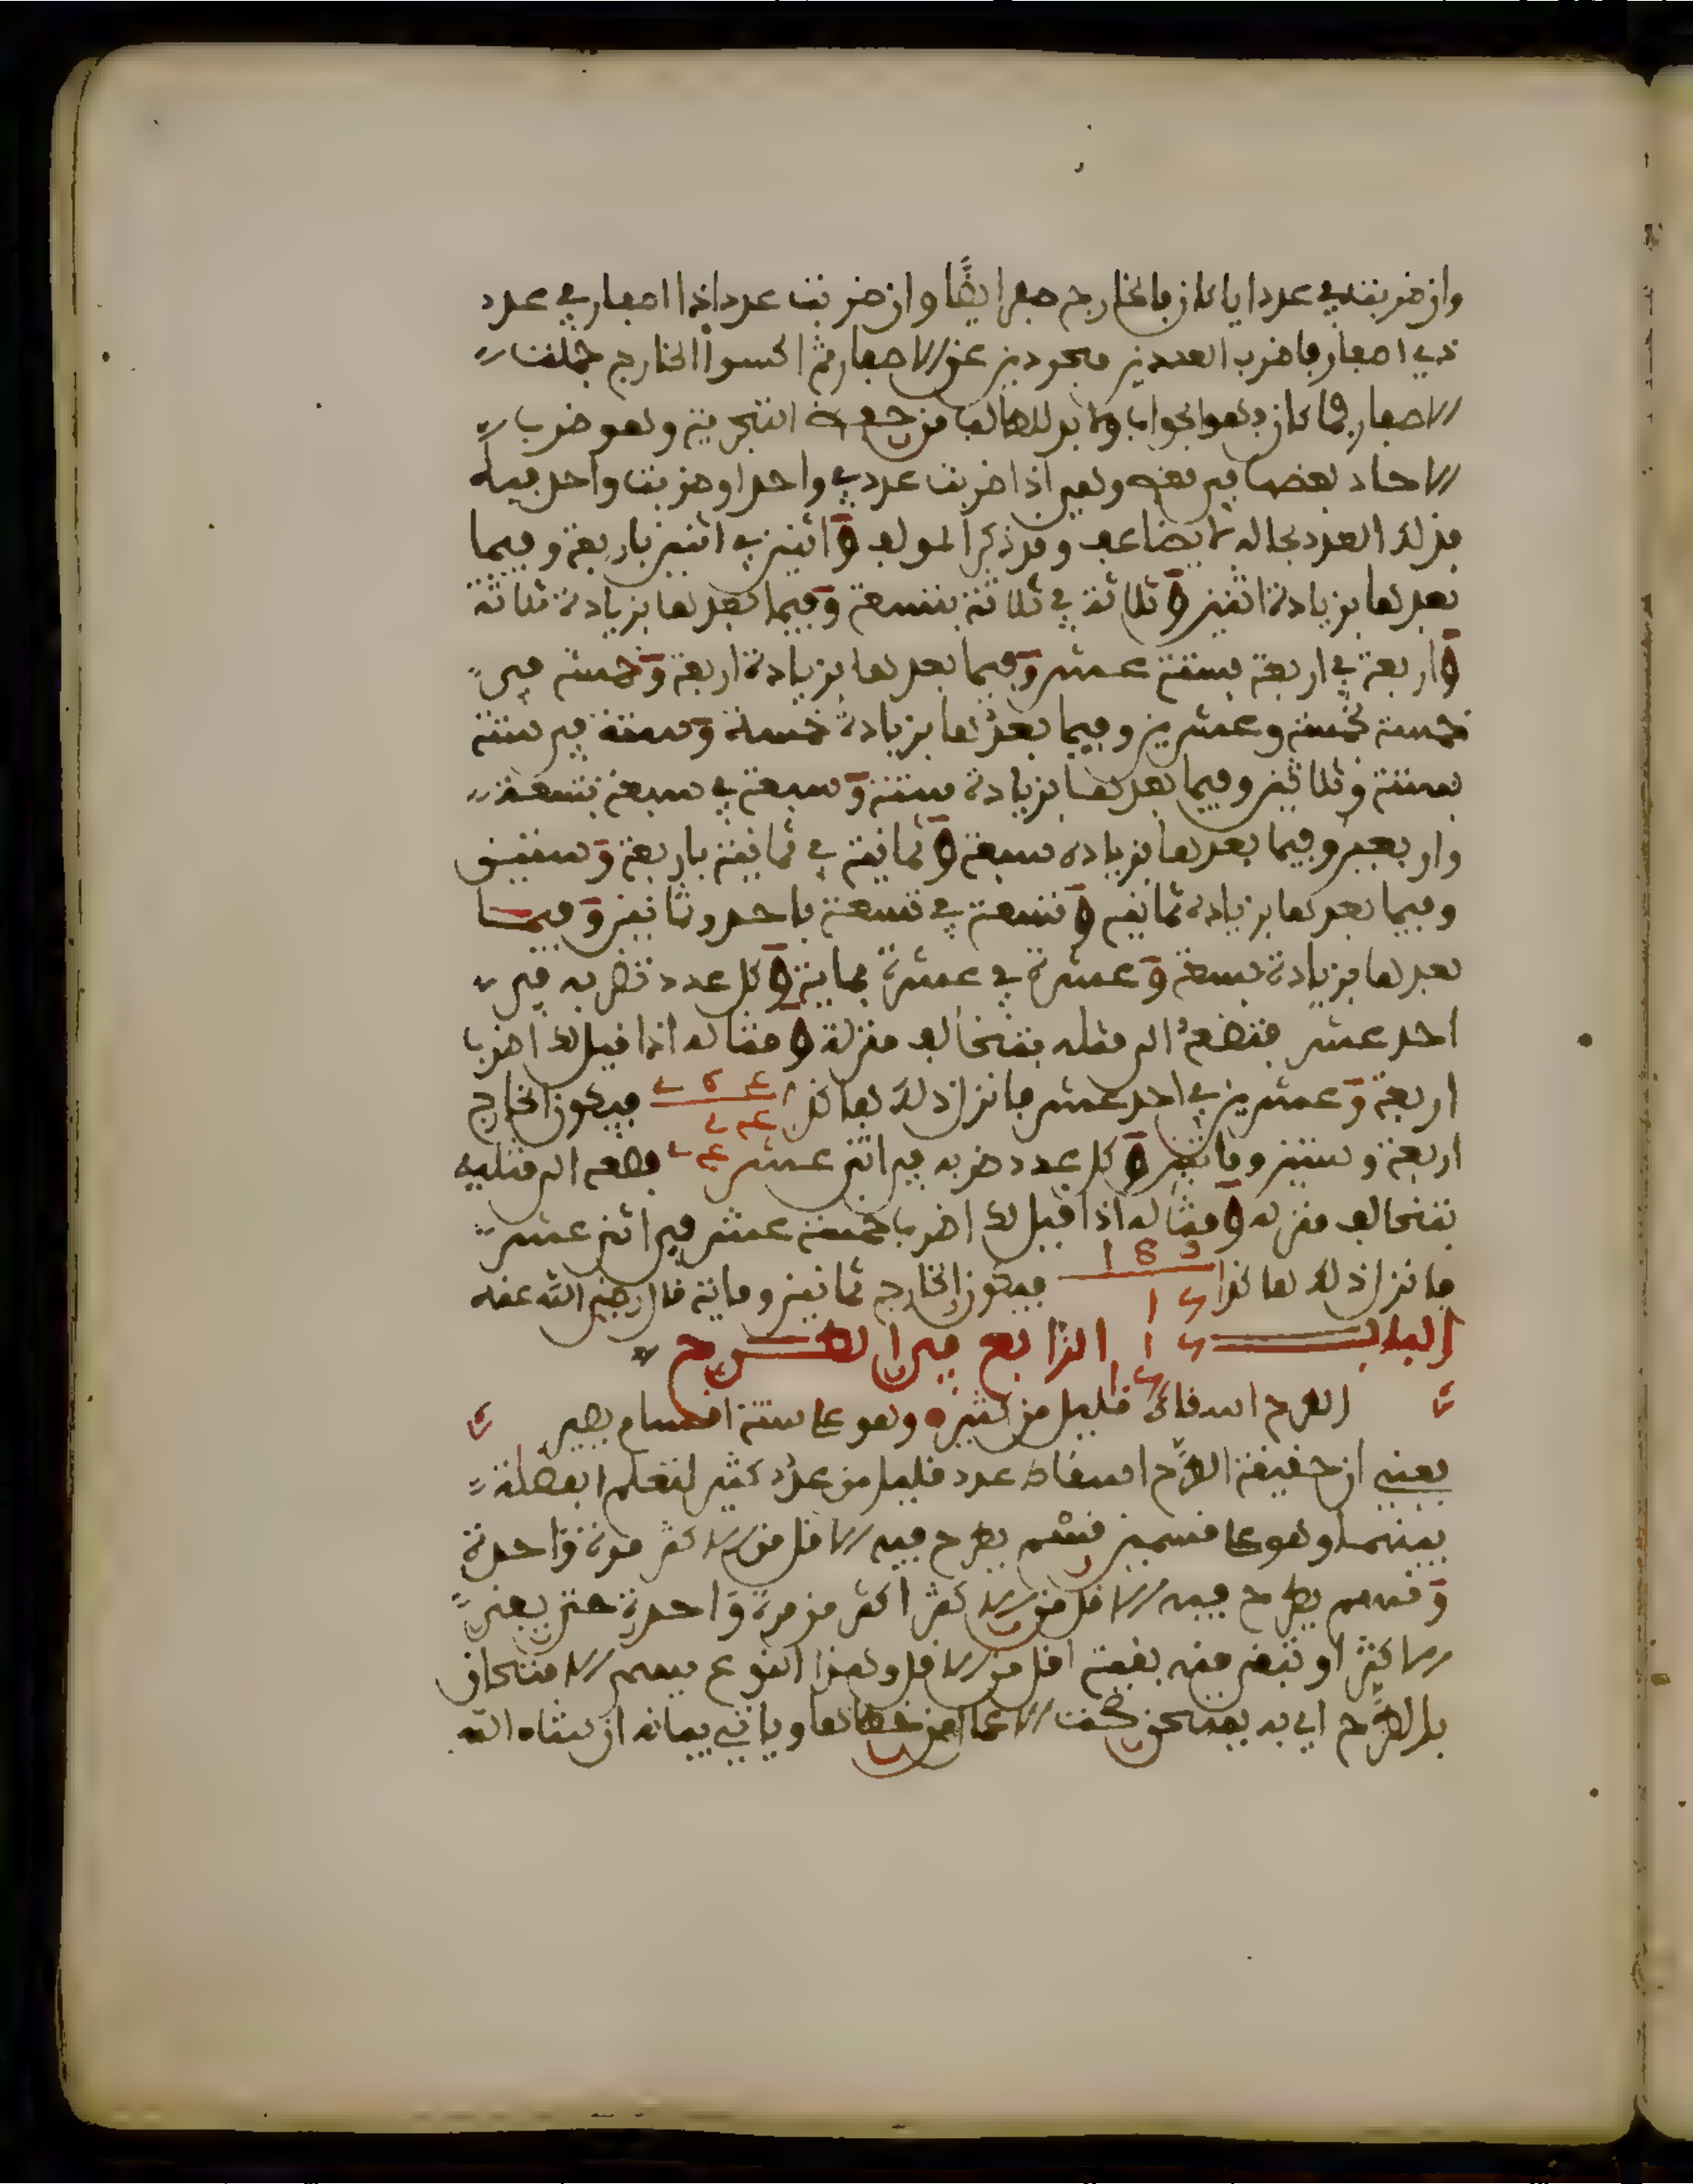 وان ضربته في عدد ايا كان فالخارج صفر ايضا وان ضربت عددا ذا اصفار في عدد
ذي اصفار فاضرب العددين مجردين عن الاصفار ثم اكسوا الخارج جملت
الاصفار فما كان فهو الجواب ولا بد للطالب من حفظ التجزية وهو ضرب
الاحاد بعضها في بعض وهي اذا ضربت عدد في واحد او ضربت واحد فيه
فذلك العدد بحاله لا يضاعف وقد ذكر المولف واثنين في اثنين باربعة وفيما
بعدها بزيادة اثنين وثلاثة في ثلاثة بتسعة وفيما بعدها بزيادة ثلاثة
واربعة في اربعة بستة عشر وفيما بعدها بزيادة اربعة وخمسة في
خمسة بخمسة وعشرين وفيما بعدها بزيادة خمسة وستة في ستة
بستة وثلاثين وفيما بعدها بزيادة ستة وسبعة في سبعة بتسعة
واربعين وفيما بعدها بزيادة سبعة وثمانية في ثمانية باربعة وستين
وفيما بعدها بزيادة ثمانية وتسعة في تسعة باحد وثمانين وفيما
بعدها بزيادة تسعة وعشرة في عشرة بماية وكل عدد تضربه في
احد عشر فتضعه الى مثله بتخالف منزلة ومثاله اذا قيل لك اضرب
اربعة وعشرين في احد عشر فانزل ذلك هاكذا فيكون الخارج
اربعة وستين وماتين وكل عدد ضربه في اثنى عشر فضعه الى مثليه
بتخالف منزله ومثاله اذا قيل لك اضرب خمسة عشر في اثنى عشر
فانزل ذلك هاكذا 1 8 0 فيكون الخارج ثمانين وماية قال رضي الله عنه
الباب الرابع في الطرح
الطرح اسقاط قليل من كثير وهو على ستة اقسام
يعني ان حقيقة الطرح اسقاط عدد قليل من عدد كثير لتعلم الفضلة
بينهما وهو على قسمين قسم يطرح فيه الاقل من الاكثر مرة واحدة
وقسم يطرح فيه الاقل من الاكثر اكثر من مرة واحدة حتى يفنى
الاكثر او تبقى منه بقية اقل من الاقل وهذا النوع يسمى الامتحان
بالطرح اي به يمتحن صحت الاعمال من خطائها وياتي بيانه ان شاء الله